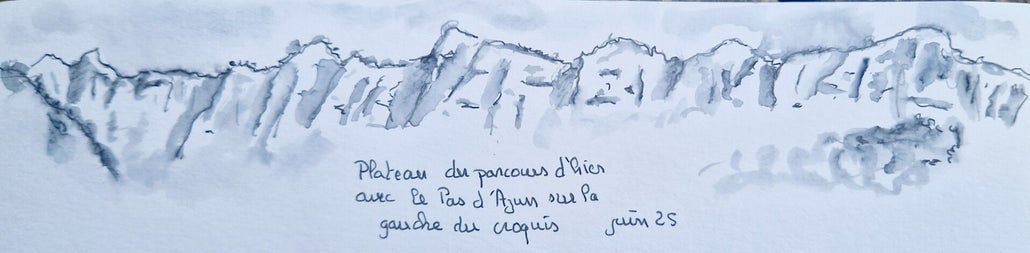 Plateau du parcours d'hier
avec le Pas d'Azun sur la
gauche du croquis juin 25